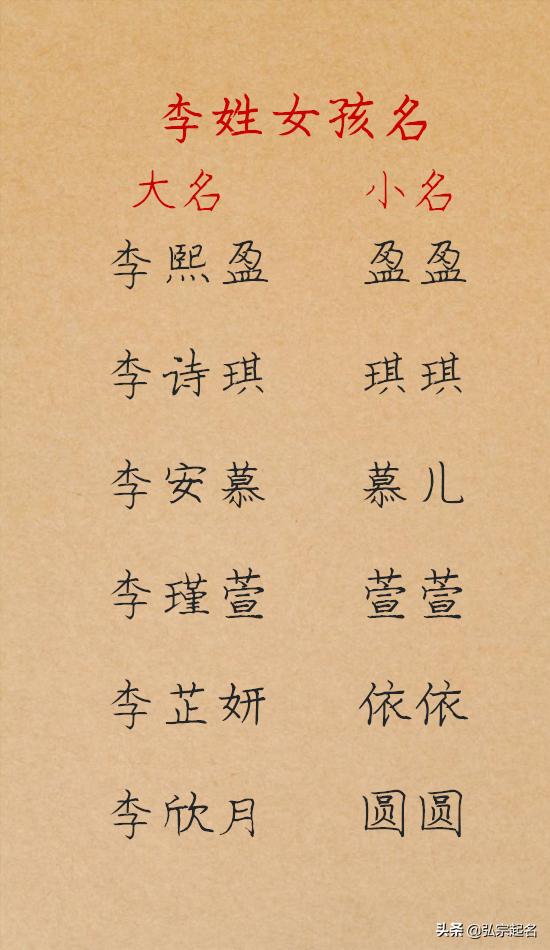 李姓女孩名
大名 小名
李熙盈 盈盈
李诗琪 琪琪
李安慕 慕儿
李瑾萱 萱萱
李芷妍 依依
李欣月 圆圆
头条 @弘宗起名